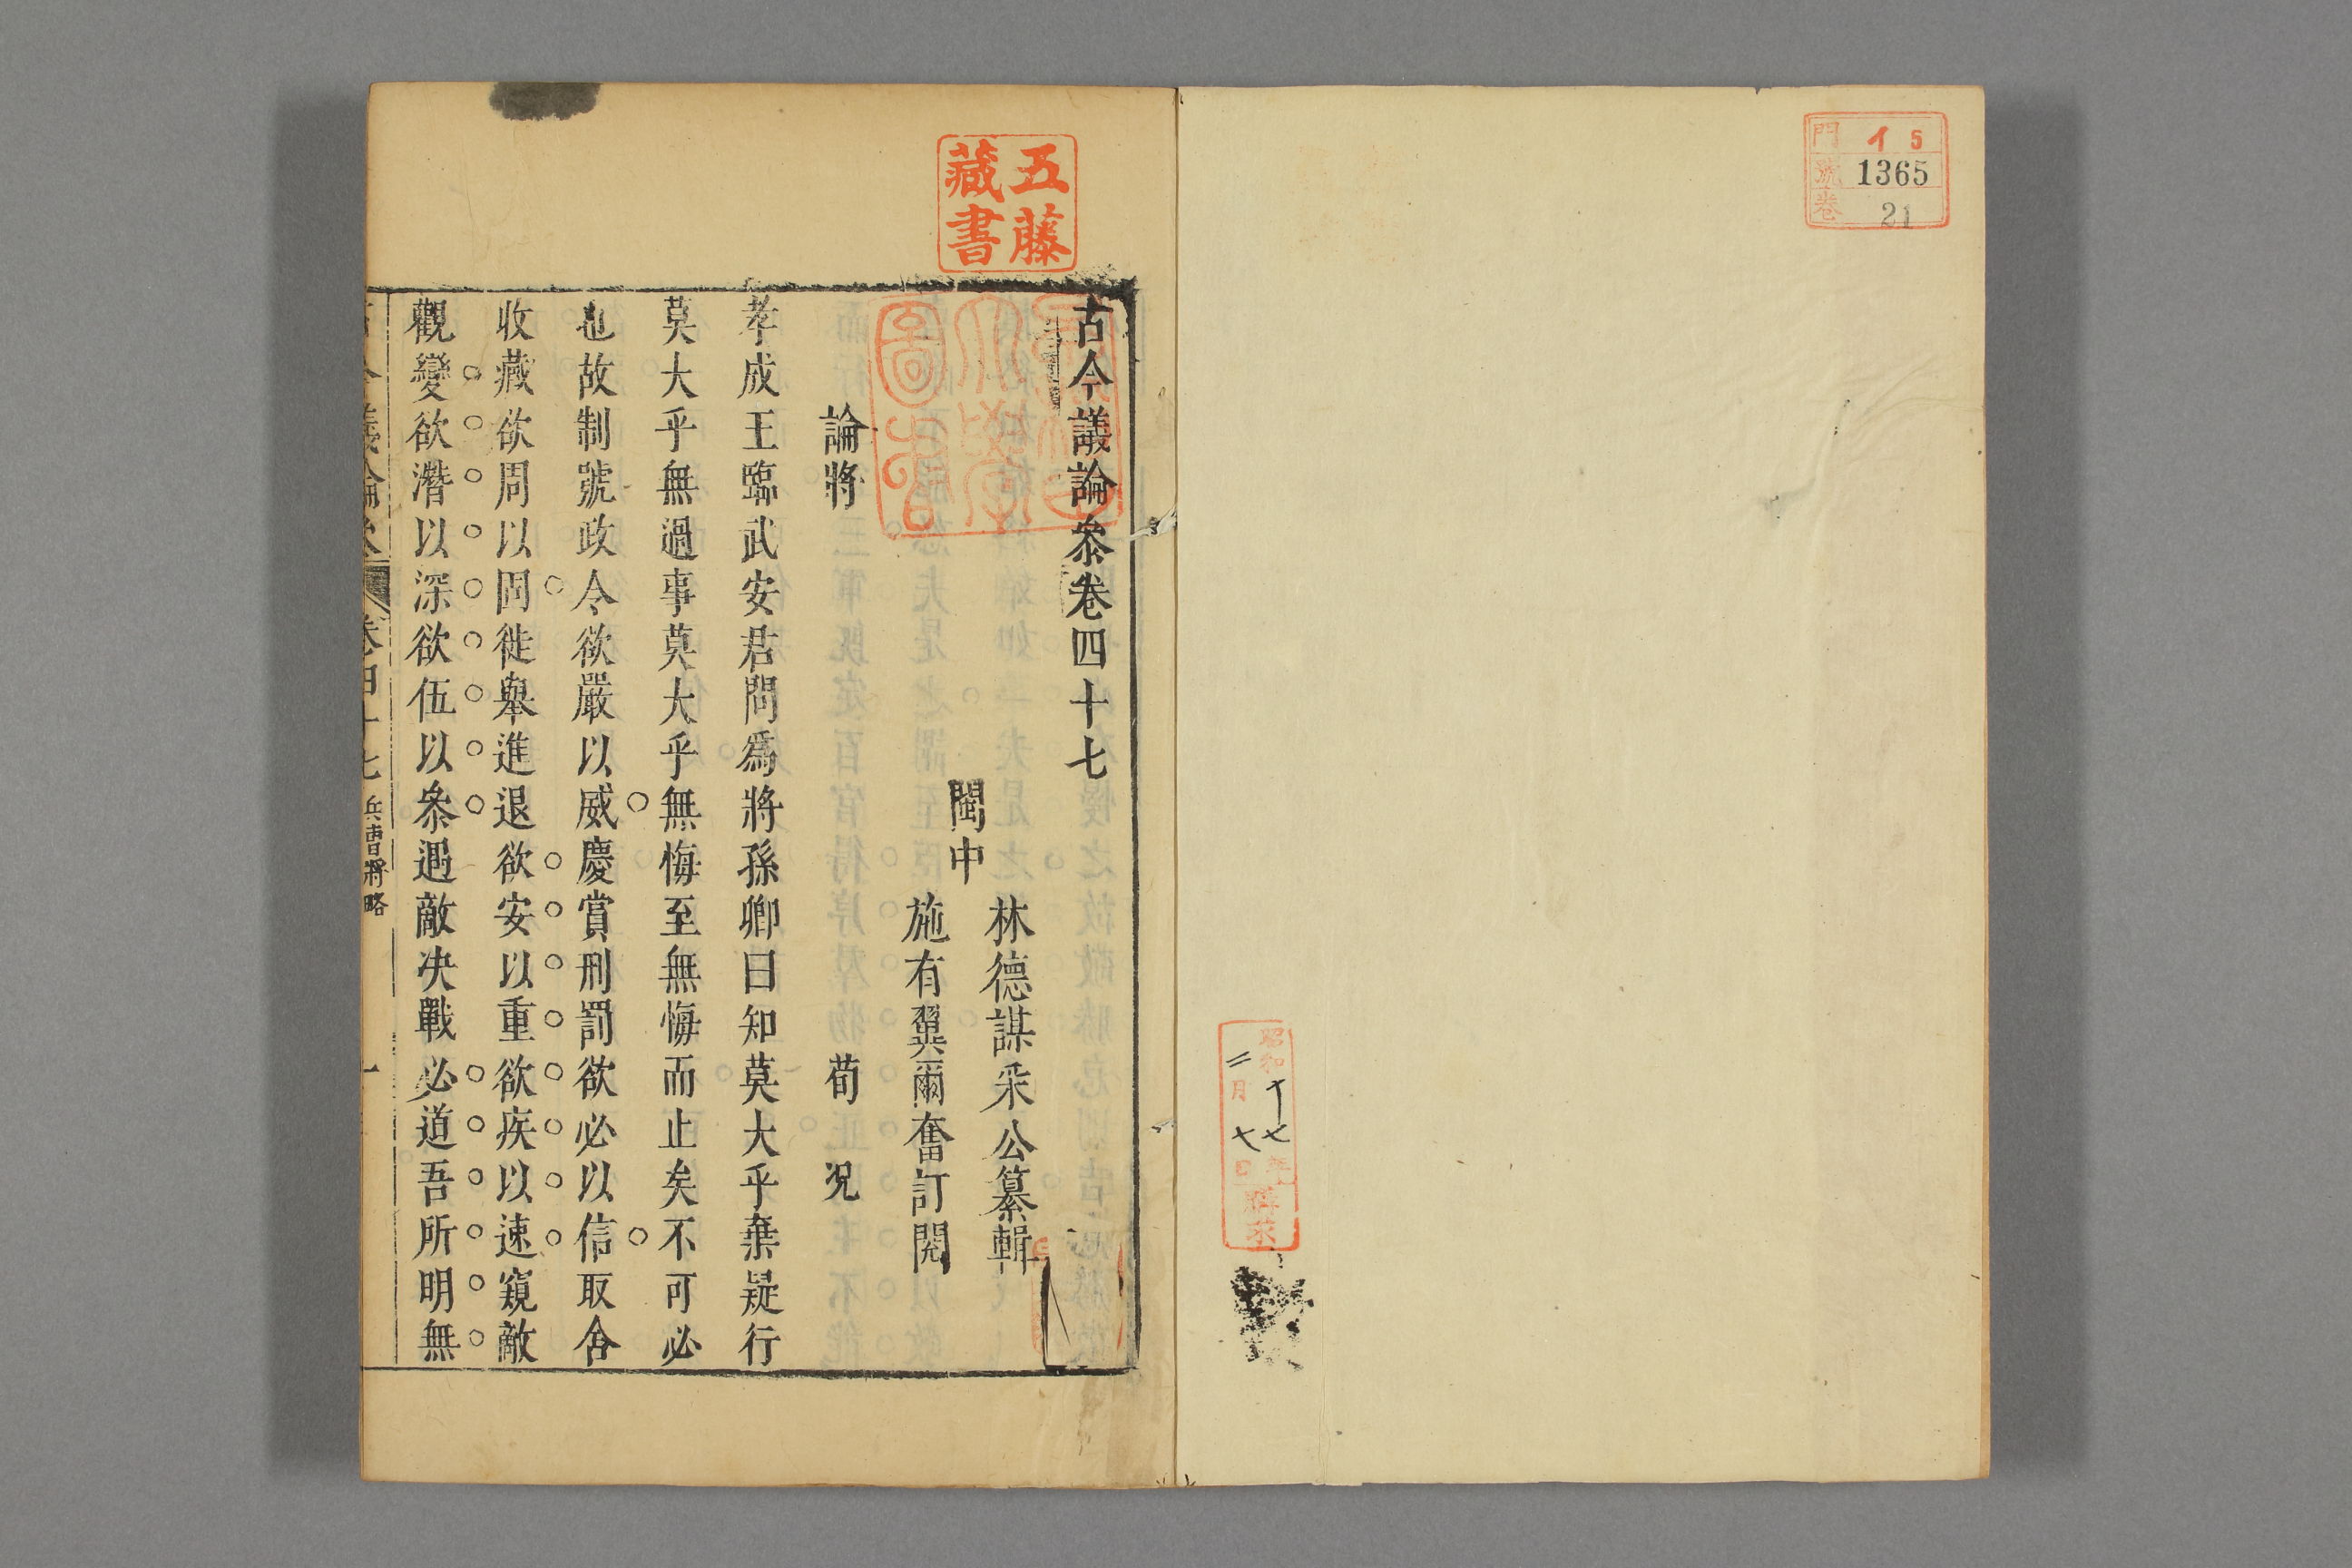 門 イ 5
號 1365
卷 21
昭和十七年
二月七日
購求
五藤
藏書
古今議論叅卷四十七
閩中
林德謀采公纂輯
施有翼爾奮訂閱
論將 荀況
孝成王臨武安君問爲將孫卿曰知莫大乎棄疑行
莫大乎無過事莫大乎無悔至無悔而止矣不可必
也故制號政令欲嚴以威慶賞刑罰欲必以信取舍
收藏欲周以固徙舉進退欲安以重欲疾以速窺敵
觀變欲潛以深欲伍以叅遇敵决戰必道吾所明無
古今議論叅 卷四十七 兵曹將略 一